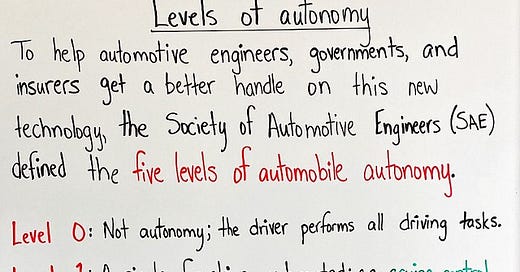 Levels of autonomy
To help automotive engineers, governments, and
insurers get a better handle on this new
technology, the Society of Automotive Engineers (SAE)
defined the five levels of automobile autonomy.
Level 0: Not autonomy; the driver performs all driving tasks.